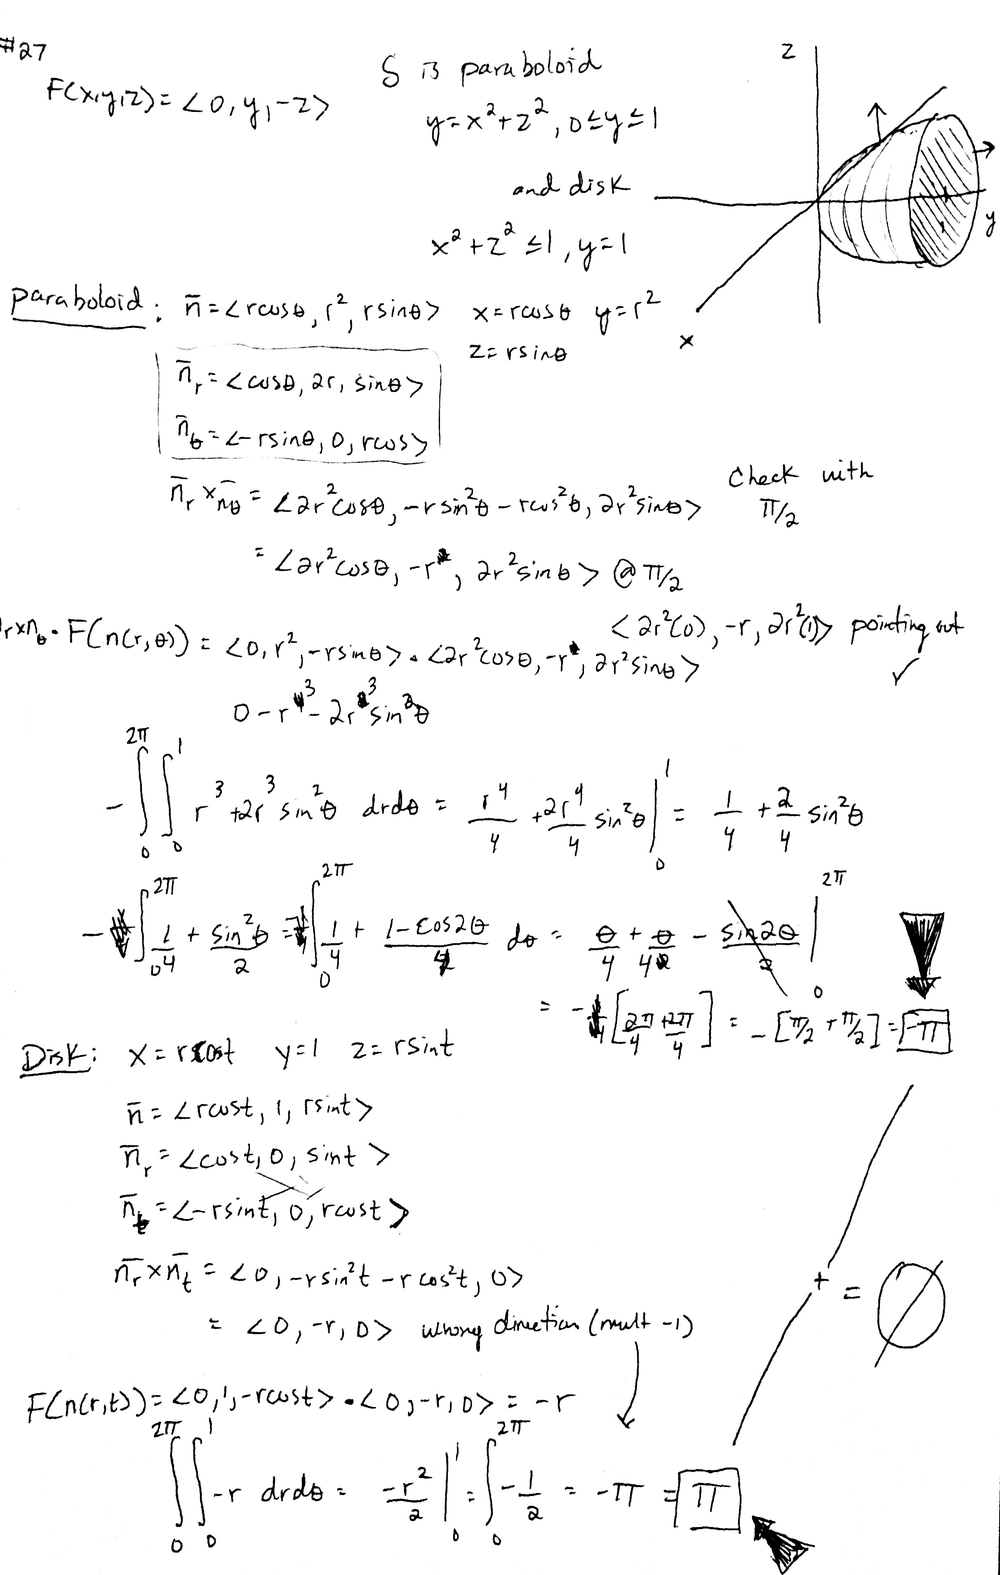 #27
F(x,y,z) = <0, y, -z>
S is paraboloid
y = x² + z², 0 ≤ y ≤ 1
and disk
x² + z² ≤ 1, y = 1
z
y
x
paraboloid: n̄ = <rcosθ, r², rsinθ> x = rcosθ y = r²
z = rsinθ
n̄_r = <cosθ, 2r, sinθ>
n̄_θ = <-rsinθ, 0, rcos>
n̄_r × n̄_θ = <2r²cosθ, -rsin²θ - rcos²θ, 2r²sinθ>
Check with
π/2
= <2r²cosθ, -r, 2r²sinθ> @ π/2
<2r²(0), -r, 2r²(1)> pointing out ✓
r×n_θ · F(n(r,θ)) = <0, r², -rsinθ> · <2r²cosθ, -r, 2r²sinθ>
0 - r³ - 2r³sin²θ
-∫₀^2π ∫₀^1 r³ + 2r³ sin²θ drdθ = r⁴/4 + 2r⁴/4 sin²θ |₀^1 = 1/4 + 2/4 sin²θ
-∫₀^2π 1/4 + sin²θ/2 = -∫₀^2π 1/4 + (1-cos2θ)/4 dθ = θ/4 + θ/4 - sin2θ/2 |₀^2π
= -[2π/4 + 2π/4] = -[π/2 + π/2] = -π
Disk: x = rcost y = 1 z = rsint
n̄ = <rcost, 1, rsint>
n̄_r = <cost, 0, sint>
n̄_t = <-rsint, 0, rcost>
n̄_r × n̄_t = <0, -rsin²t - rcos²t, 0>
= <0, -r, 0> wrong direction (mult -1)
+ = ∅
F(n(r,t)) = <0, 1, -rcost> · <0, -r, 0> = -r
∫₀^2π ∫₀^1 -r drdθ = -r²/2 |₀^1 = ∫₀^2π -1/2 = -π = π